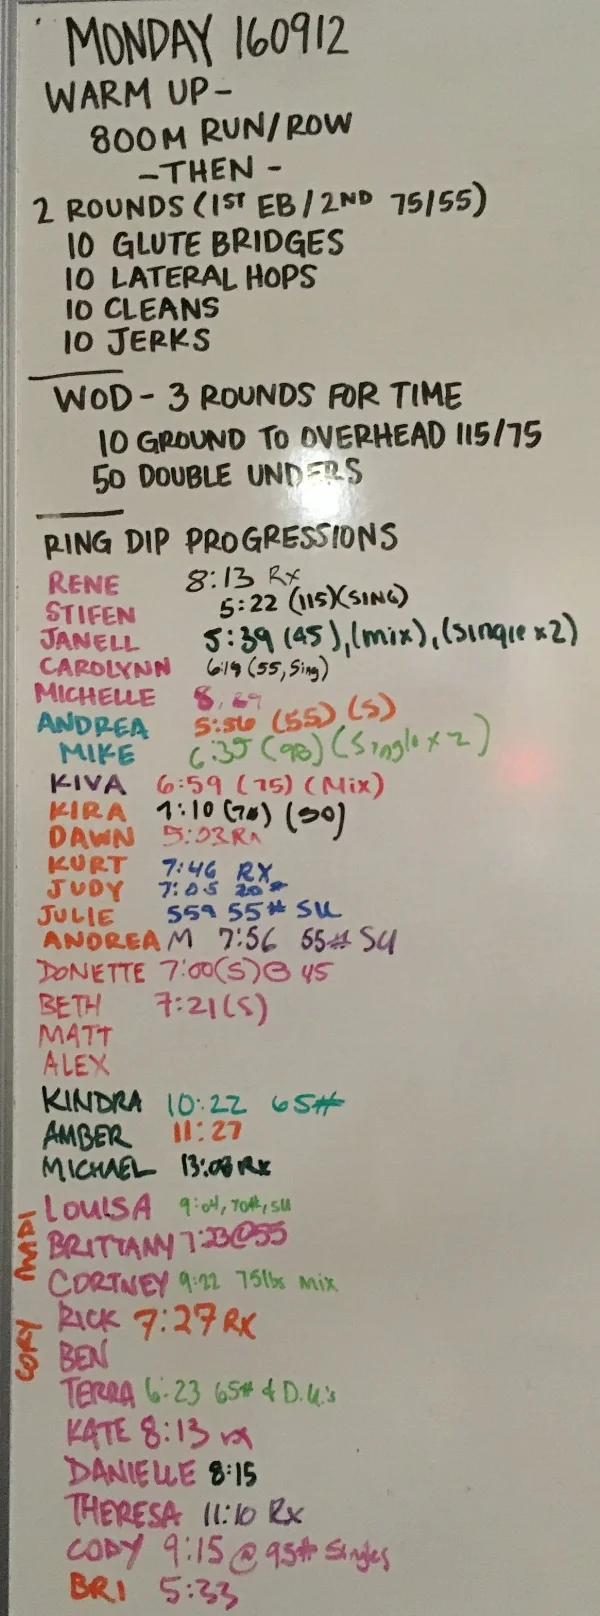 MONDAY 160912
WARM UP -
800M RUN/ROW
- THEN -
2 ROUNDS (1ST EB / 2ND 75/55)
10 GLUTE BRIDGES
10 LATERAL HOPS
10 CLEANS
10 JERKS
WOD - 3 ROUNDS FOR TIME
10 GROUND TO OVERHEAD 115/75
50 DOUBLE UNDERS
RING DIP PROGRESSIONS
RENE 8:13 Rx
STIFEN 5:22 (115)(SING)
JANELL 5:39 (45), (mix), (single x2)
CAROLYNN 6:19 (55, Sing)
MICHELLE
ANDREA 5:56 (55) (S)
MIKE 6:35 (Single x 2)
KIVA 6:59 (75) (Mix)
KIRA
DAWN 5:03 Rx
KURT 7:46 RX
JUDY 7:05
JULIE 559 55# SU
ANDREA M 7:56 55# SU
DONETTE 7:00(S)@45
BETH 7:21(S)
MATT
ALEX
KINDRA 10:22 65#
AMBER 11:27
MICHAEL 13:08 RX
LOUISA 9:04, 70#, SU
BRITTANY 7:23@55
CORTNEY 9:22 75lbs Mix
RICK 7:27 RX
BEN
TERRA 6:23 65# & D.U.'s
KATE 8:13 rx
DANIELLE 8:15
THERESA 11:10 Rx
CODY 9:15 @ 95# Singles
BRI 5:33
CORY